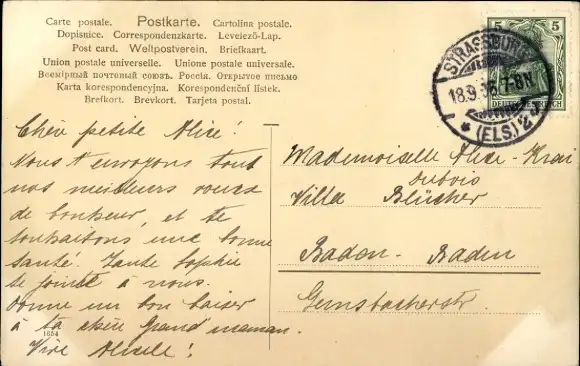 Carte postale. Postkarte. Cartolina postale.
Dopisnice. Correspondenzkarte. Levelező-Lap.
Post card. Weltpostverein. Briefkaart.
Union postale universelle. Unione postale universale.
Всемірный почтовый союзъ. Россія. Открытое письмо
Karta korespondencyjna. Korespondenční lístek.
Brefkort. Brevkort. Tarjeta postal.
5 5
DEUTSCHES REICH
STRASSBURG
18.9. 7-8N
* (ELS.) 2
Chère petite Alice!
Nous t'envoyons tous
nos meilleurs voeux
de bonheur, et te
souhaitons une bonne
santé. Tante Sophie
se joint à nous.
Donne un bon baiser
à ta chère Grand'maman.
Vive Alice!
1654
Mademoiselle Alice
Dubois
Villa Blücher
Baden-Baden
Gunsbacherstr.